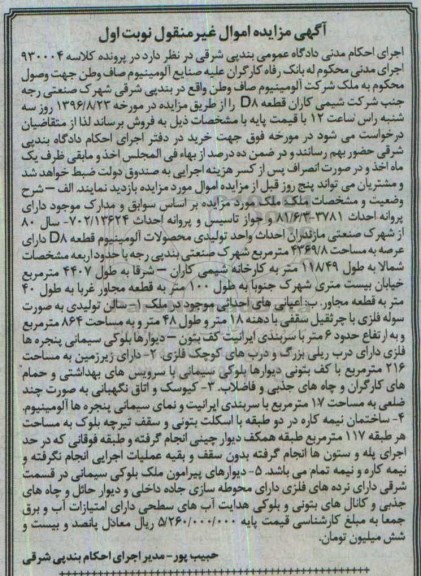 آگهی مزایده اموال غیرمنقول نوبت اول
اجرای احکام مدنی دادگاه عمومی بندپی شرقی در نظر دارد در پرونده کلاسه ۹۳۰۰۰۴
اجرای مدنی محکوم له بانک رفاه کارگران علیه صنایع آلومینیوم صاف وطن جهت وصول
محکوم به ملک شرکت آلومینیوم صاف وطن واقع در بندپی شرقی شهرک صنعتی رجه
جنب شرکت شیمی کاران قطعه D۸ را از طریق مزایده در مورخه ۱۳۹۶/۸/۲۳ روز سه
شنبه راس ساعت ۱۲ با قیمت پایه با مشخصات ذیل به فروش برساند لذا از متقاضیان
درخواست می شود در مورخه فوق جهت خرید در دفتر اجرای احکام دادگاه بندپی
شرقی حضور بهم رسانند و در ضمن ده درصد از بهاء فی المجلس اخذ و مابقی ظرف یک
ماه اخذ و در صورت انصراف پس از کسر هزینه اجرایی به صندوق دولت ضبط خواهد شد
و مشتریان می تواند پنج روز قبل از مزایده اموال مورد مزایده بازدید نمایند. الف – شرح
وضعیت و مشخصات ملک ملک مورد مزایده بر اساس سوابق و مدارک موجود دارای
پروانه احداث ۳۷۸۱-۸۱/۶/۳ و جواز تاسیس و پروانه احداث ۷۰۲/۱۳۶۲۴- سال ۸۰
از شهرک صنعتی مازندران احداث واحد تولیدی محصولات آلومینیوم قطعه D۸ دارای
عرصه به مساحت ۴۳۶۹/۸ مترمربع شهرک صنعتی بندپی رجه با حدود اربعه مشخصات
شمالا به طول ۱۱۸/۴۹ متر به کارخانه شیمی کاران – شرقا به طول ۴۴۰۷ مترمربع
خیابان بیست متری شهرک جنوبا به طول ۱۰۰ متر به قطعه مجاور غربا به طول ۴۰
متر به قطعه مجاور. ب: اعیانی های احداثی موجود در ملک ۱- سالن تولیدی به صورت
سوله فلزی با جرثقیل سقفی با دهنه ۱۸ متر و طول ۴۸ متر و به مساحت ۸۶۴ مترمربع
و به ارتفاع حدود ۶ متر با سربندی ایرانیت کف بتون – دیوارها بلوکی سیمانی پنجره ها
فلزی دارای درب ریلی بزرگ و درب های کوچک فلزی ۲- دارای زیرزمین به مساحت
۲۱۶ مترمربع با کف بتونی دیوارها بلوکی سیمانی با سرویس های بهداشتی و حمام
های کارگران و چاه های جذبی و فاضلاب. ۳- کیوسک و اتاق نگهبانی به صورت چند
ضلعی به مساحت ۱۷ مترمربع با سربندی ایرانیت و نمای سیمانی پنجره ها آلومینیوم.
۴- ساختمان نیمه کاره در دو طبقه با اسکلت بتونی و سقف تیرچه بلوک به مساحت
هر طبقه ۱۱۷ مترمربع طبقه همکف دیوار چینی انجام گرفته و طبقه فوقانی که در حد
اجرای پله و ستون ها انجام گرفته بدون سقف و بقیه عملیات اجرایی انجام نگرفته و
نیمه کاره و نیمه تمام می باشد. ۵- دیوارهای پیرامون ملک بلوکی سیمانی در قسمت
شرقی دارای نرده های فلزی دارای محوطه سازی جاده داخلی و دیوار حائل و چاه های
جذبی و کانال های بتونی و بلوکی هدایت آب های سطحی دارای امتیازات آب و برق
جمعا به مبلغ کارشناسی قیمت پایه ۵/۲۶۰/۰۰۰/۰۰۰ ریال معادل پانصد و بیست و
شش میلیون تومان.
حبیب پور- مدیر اجرای احکام بندپی شرقی